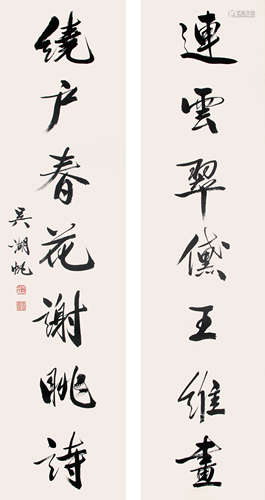 連雲翠黛王維畫
繞户春花謝眺詩
吳湖帆